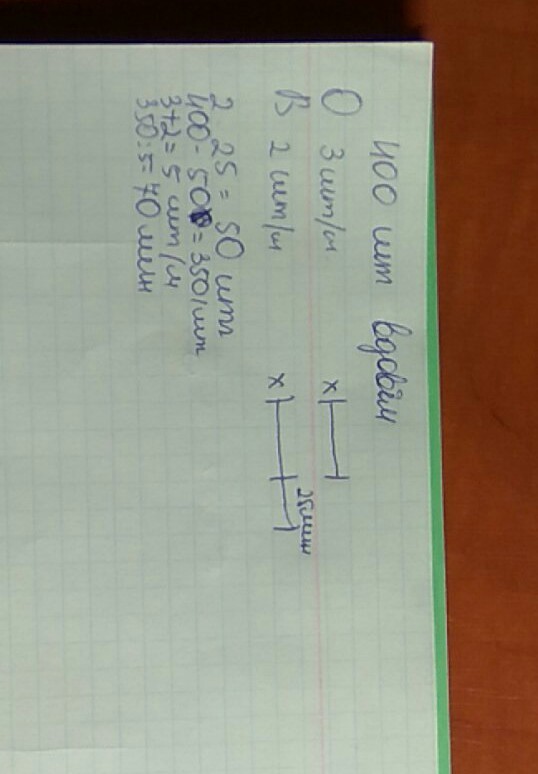 400 шт вдвоём
О 3 шт/м х
В 2 шт/м х 25 мин
2 25 = 50 шт
400 - 50 = 350 шт
3+2 = 5 шт/м
350:5 = 70 мин